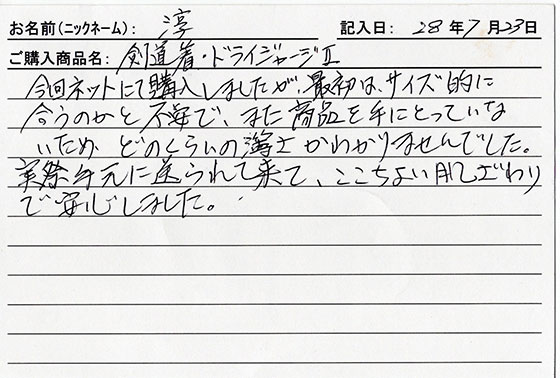 お名前(ニックネーム): 淳 記入日: 28年7月23日
ご購入商品名: 剣道着・ドライジャージⅡ
今回ネットにて購入しましたが、最初は、サイズ的に
合うのかと不安で、また商品を手にとっていな
いため どのくらいの薄さかわかりませんでした。
実際手元に送られて来て、ここちよい肌ざわり
で安心しました。